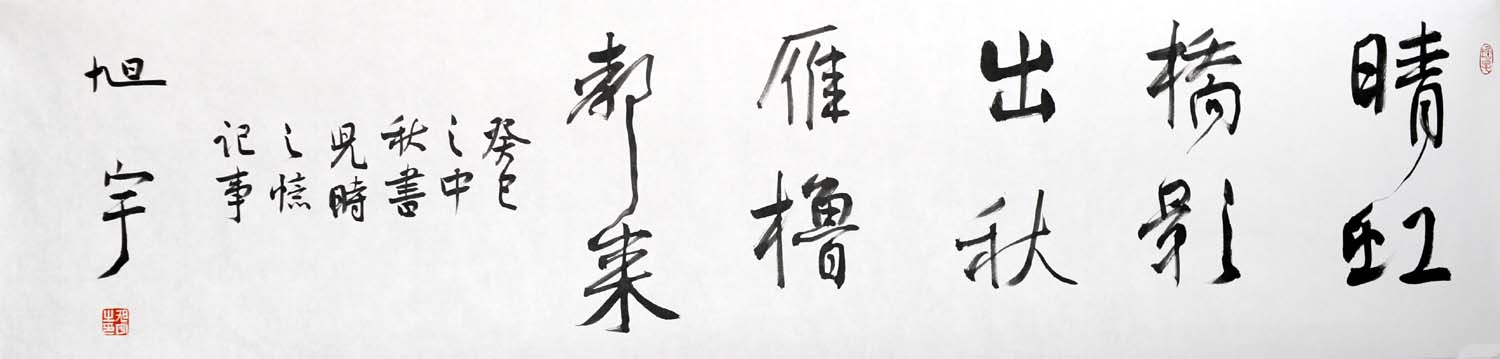 晴虹
橋影
出秋
雁櫓
来
癸巳
之中
秋書
兒時
之憶
记事
旭宇